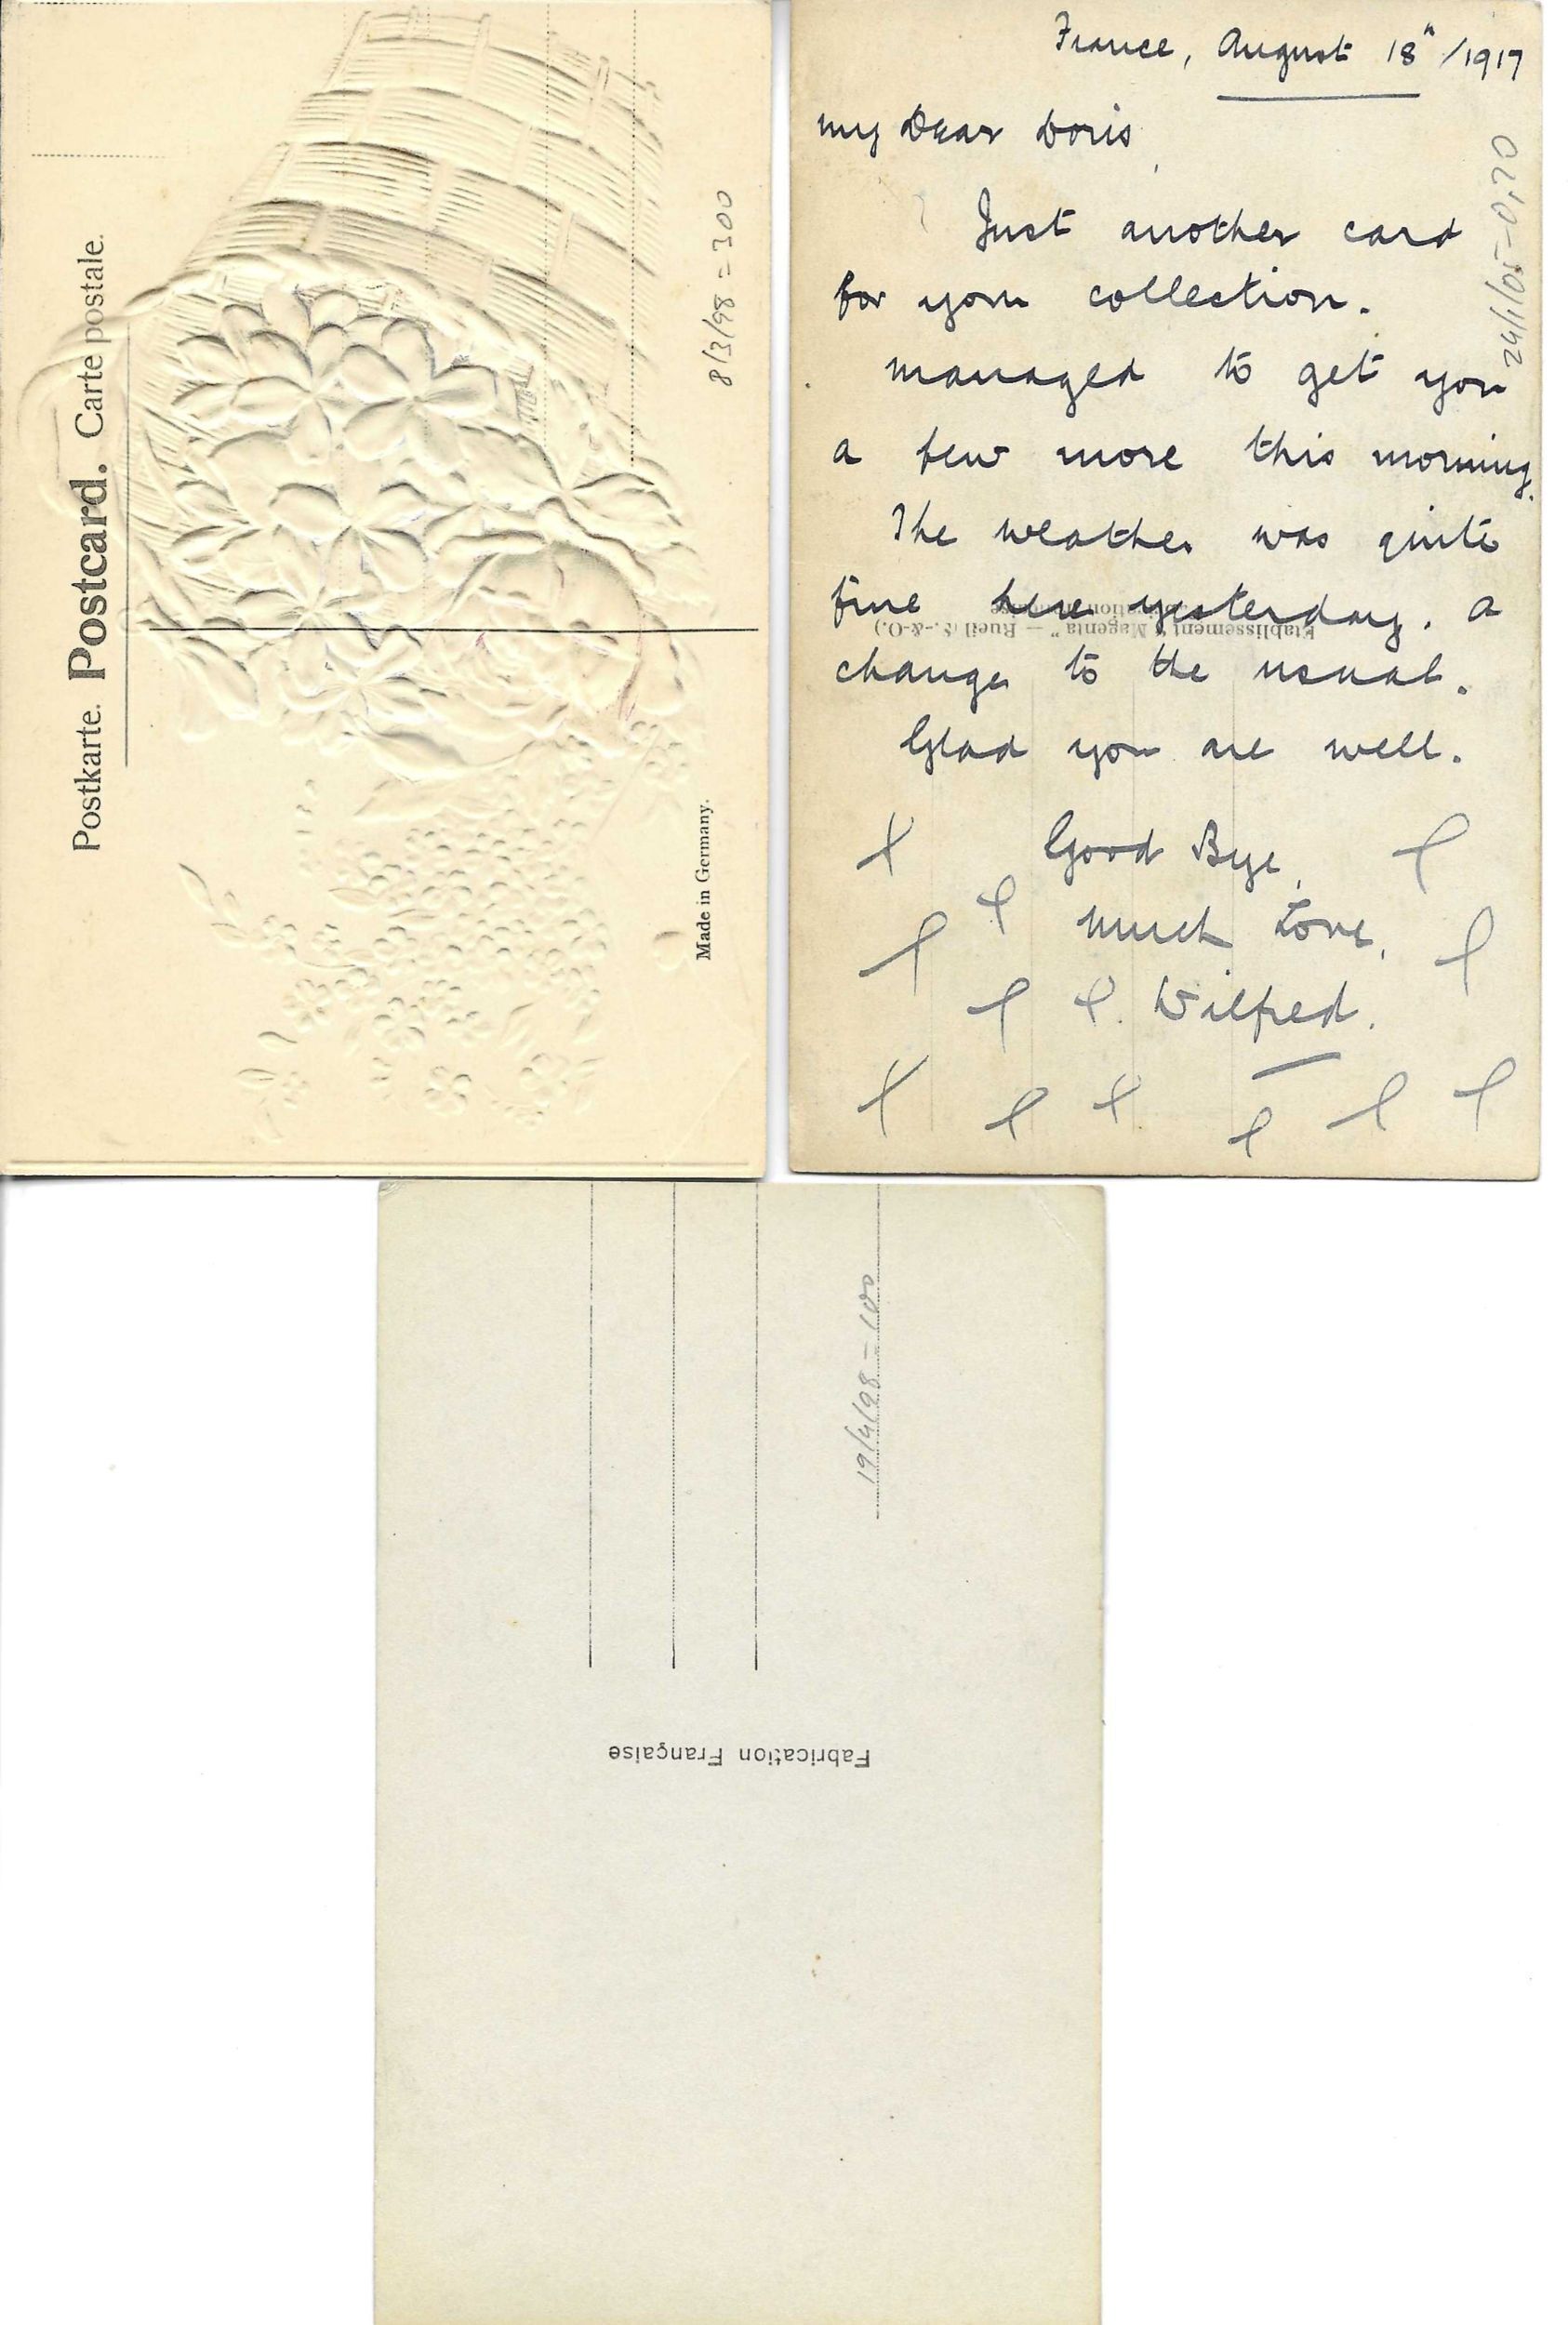 Postkarte. Postcard. Carte postale.
8/3/98 = 300
Made in Germany.
France, August 18" /1917
my Dear Doris
Just another card
for your collection.
managed to get you
a few more this morning.
The weather was quite
fine here yesterday. a
change to the usual.
Glad you are well.
Good Bye,
much Love,
Wilfred.
24/1/05-0,70
Etablissement "Magenta" — Rueil (S.-&-O.)
19/4/98-100
Fabrication Française